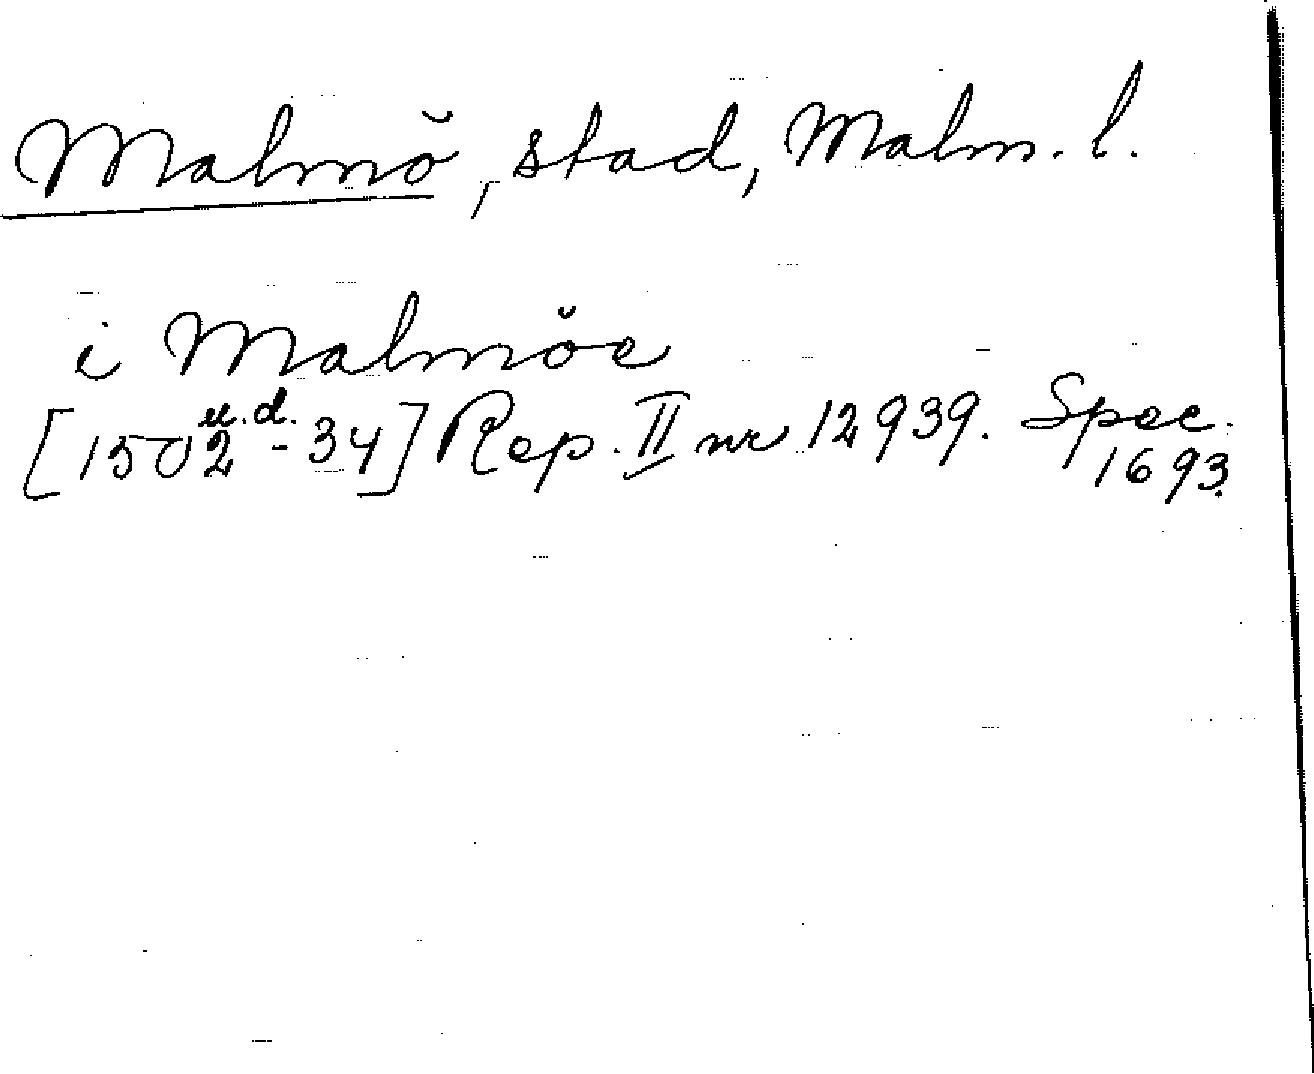 Malmö, stad, Malm. l.
i Malmöe
u.d.
[1502-34] Rep. II nr 12939. Spec.
1693.